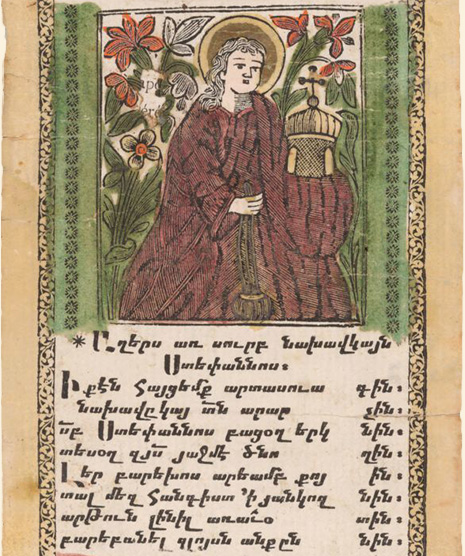 ✳ Աղերս առ սուրբ նախավկայն
Ստեփաննոս։
Ի քէն հայցեմք արտասուա գին։
նախավըկայ տ՟ն արար չին։
ս՟բ Ստեփաննոս բացօղ երկ նին։
տեսօղ զյ՟ս յաջմէ ծնո ղին։
Լեր բարեխոս արեամբ քոյ ին։
տալ մեզ հանգիստ ՚ի յանկող նին։
արթուն լինիլ առաւօ տին։
բարեբանել զլոյսն անքըն նին։